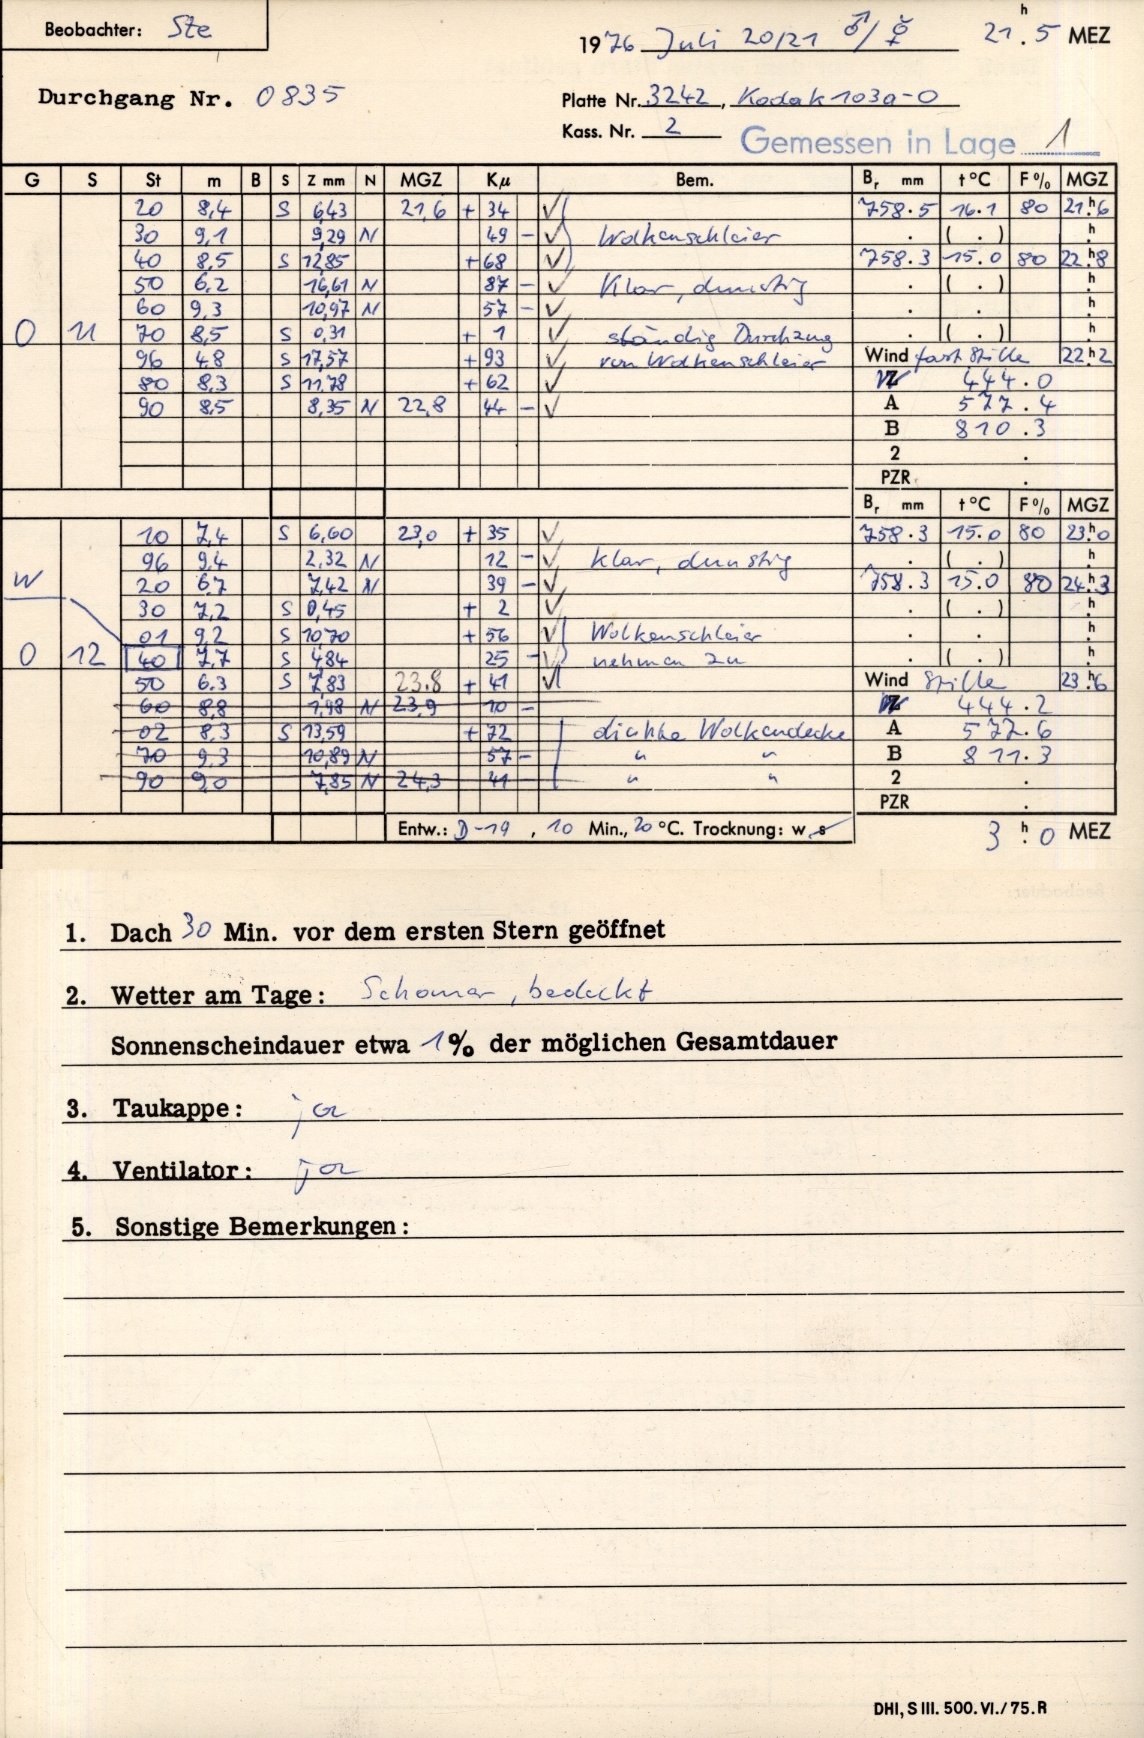 Beobachter: Ste
1976 Juli 20/21 ♂/☿ 21ʰ.5 MEZ
Durchgang Nr. 0835
Platte Nr. 3242, Kodak 103a-O
Kass. Nr. 2
Gemessen in Lage 1
G S St m B S Z mm N MGZ Kμ Bem. Bᵣ mm t°C F% MGZ
20 8,4 S 6,43 21,6 + 34 √ 758.5 16.1 80 21ʰ.6
30 9,1 9,29 N 49 – √ Wolkenschleier . ( . ) ʰ.
40 8,5 S 12,85 + 68 √ 758.3 15.0 80 22ʰ.8
50 6,2 16,61 N 87 – √ Klar, dunstig . ( . ) ʰ.
60 9,3 10,97 N 57 – √ . . ʰ.
O 11 70 8,5 S 0,31 + 1 √ ständig Durchzug . ( . ) ʰ.
96 4.8 S 17,57 + 93 √ von Wolkenschleier Wind fast Stille 22ʰ.2
80 8,3 S 11,78 + 62 √ Z 444.0
90 8,5 8,35 N 22,8 44 – √ A 577.4
B 810.3
2 .
PZR .
Bᵣ mm t°C F% MGZ
10 7,4 S 6,60 23,0 + 35 √ 758.3 15.0 80 23ʰ.0
96 9,4 2,32 N 12 – √ Klar, dunstig . ( . ) ʰ.
W 20 6.7 7,42 N 39 – √ 758.3 15.0 80 24ʰ.3
30 7,2 S 0,45 + 2 √ . ( . ) ʰ.
01 9,2 S 10,70 + 56 √ Wolkenschleier . . ʰ.
O 12 40 7,7 S 4,84 25 – √ nehmen zu . ( . ) ʰ.
50 6.3 S 7,83 23.8 + 41 √ Wind Stille 23ʰ.6
60 8,8 1,98 N 23,9 10 – Z 444.2
02 8,3 S 13,59 + 72 dichte Wolkendecke A 577.6
70 9,3 10,89 N 57 – " " B 811.3
90 9,0 7,85 N 24,3 41 – " " 2 .
PZR .
Entw.: D-19, 10 Min., 20 °C. Trocknung: w, s
3ʰ.0 MEZ
1. Dach 30 Min. vor dem ersten Stern geöffnet
2. Wetter am Tage: Schauer, bedeckt
Sonnenscheindauer etwa 1% der möglichen Gesamtdauer
3. Taukappe: ja
4. Ventilator: ja
5. Sonstige Bemerkungen:
DHI, S III. 500. VI./75. R